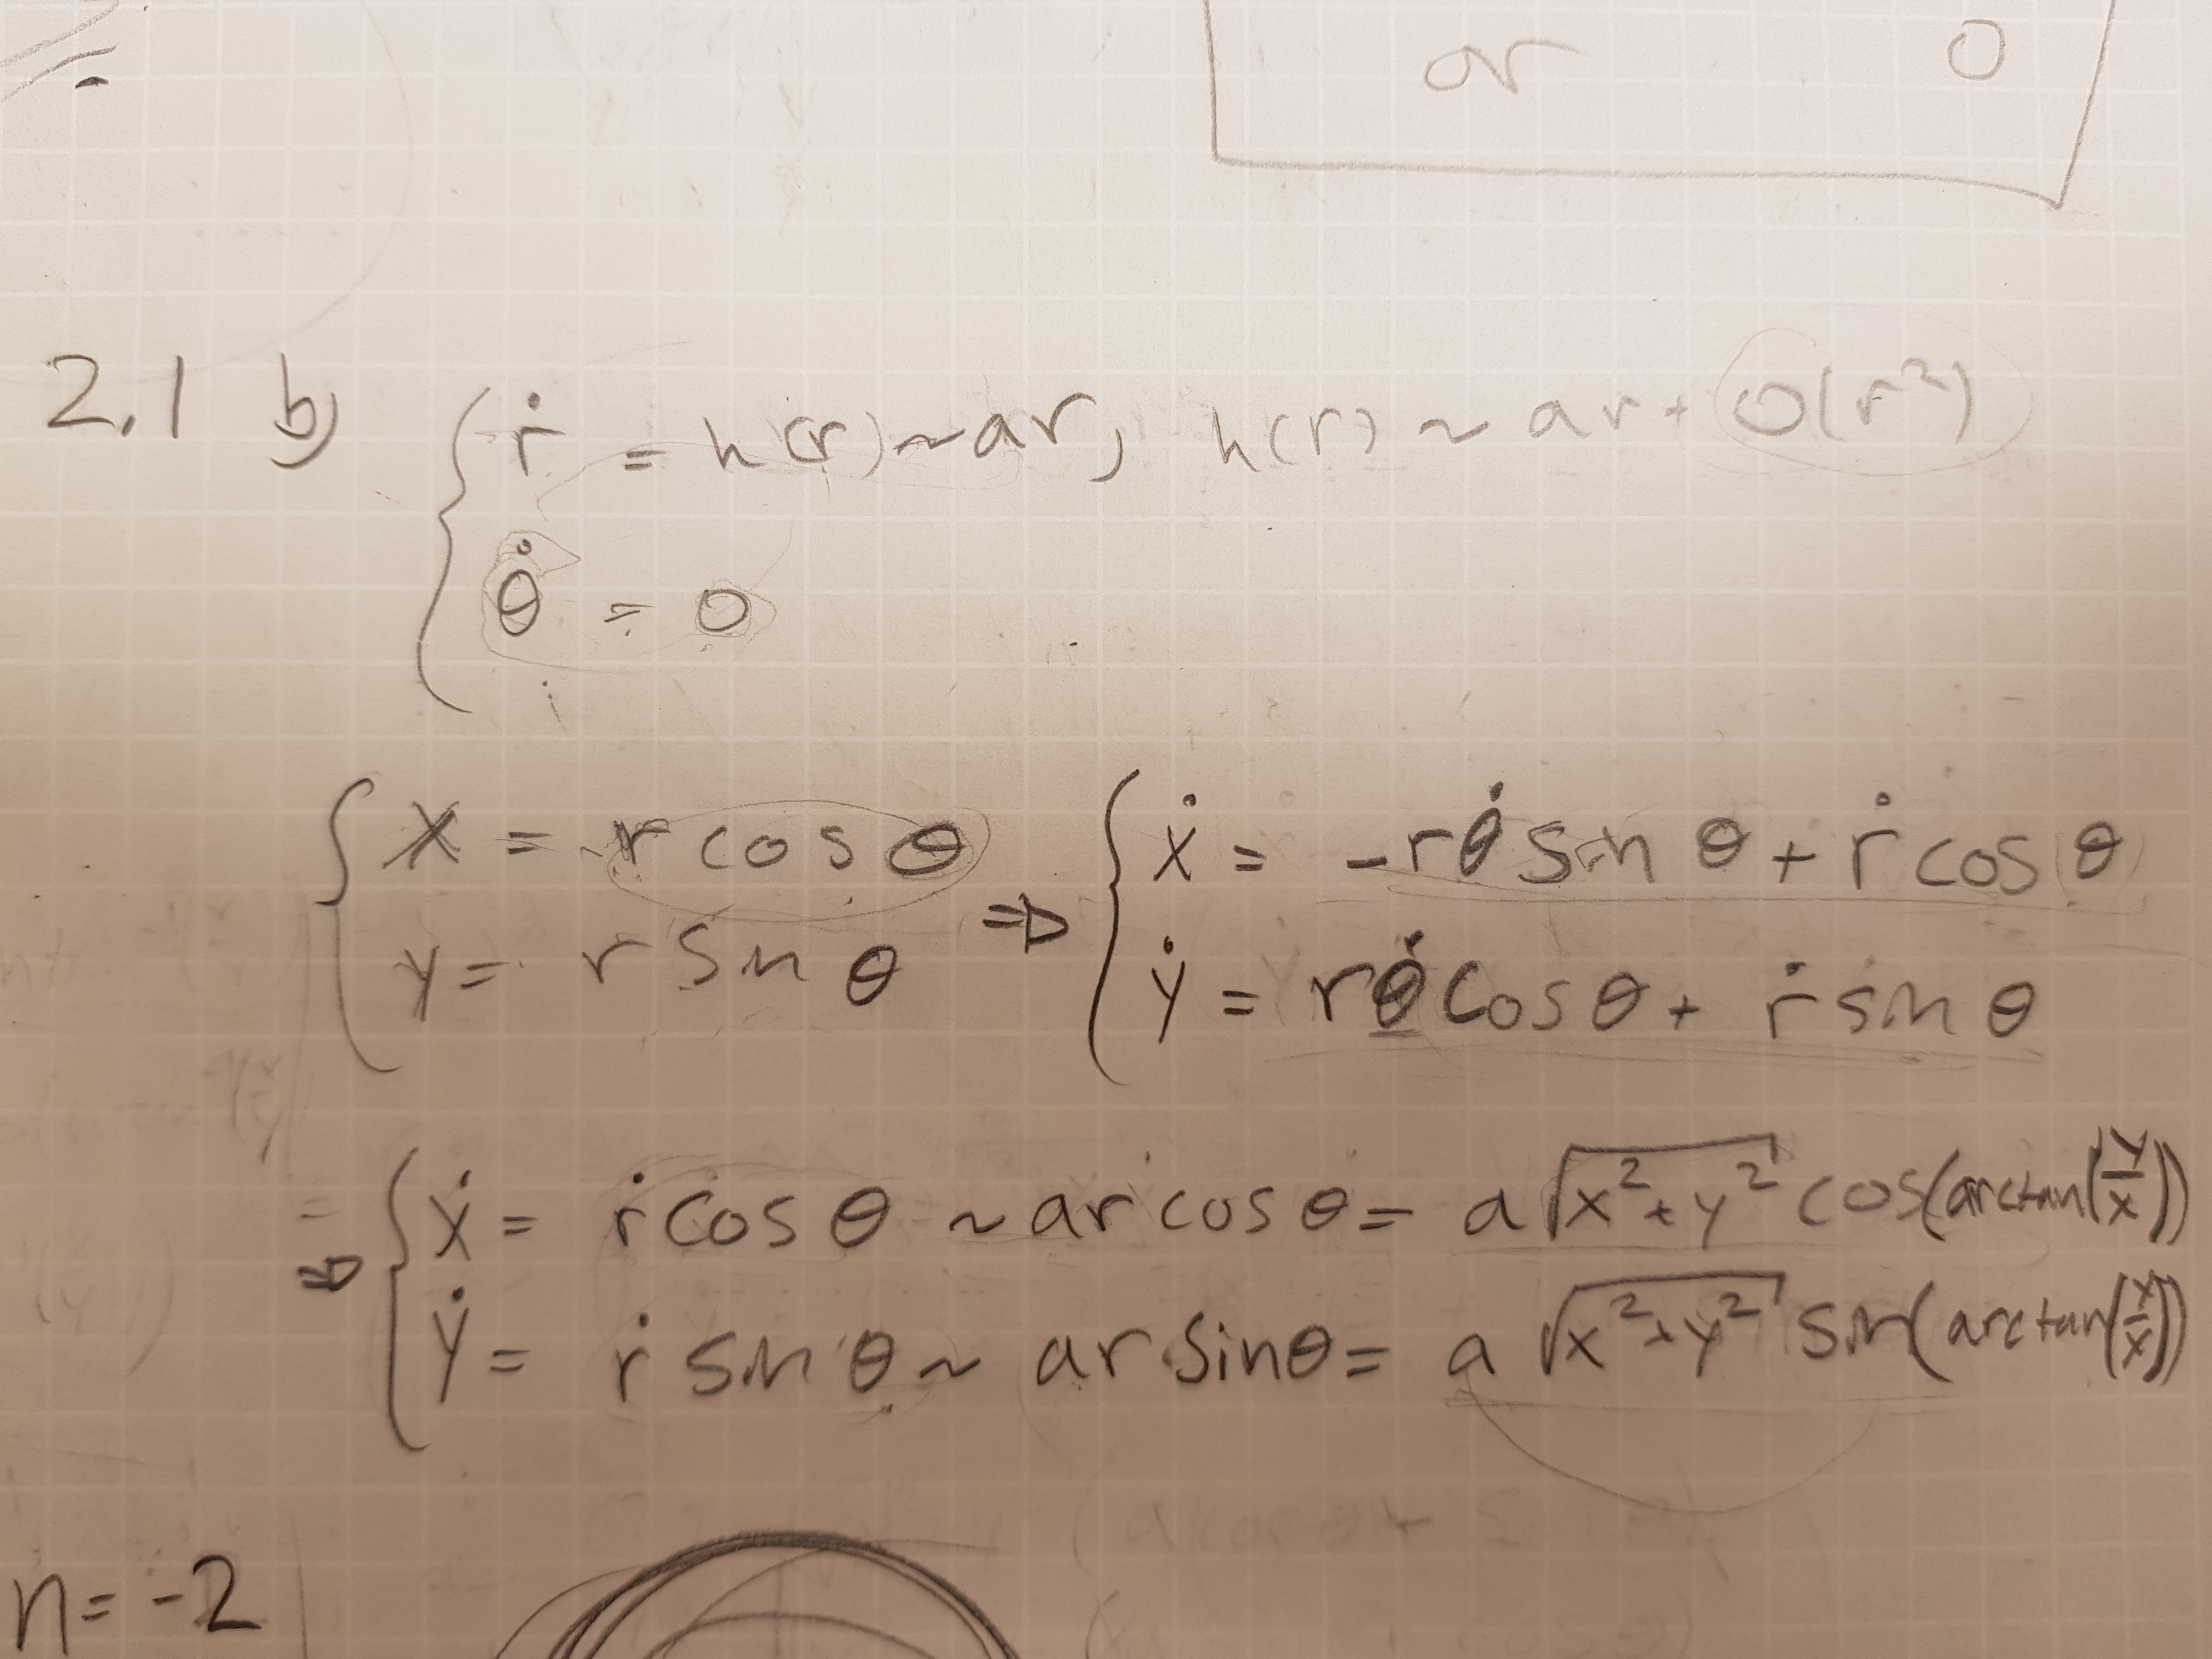 ar 0
2.1 b) { ṙ = h(r) ~ ar, h(r) ~ ar + O(r²)
θ̇ = 0
{ x = r cos θ ⇒ { ẋ = -rθ̇ sin θ + ṙ cos θ
y = r sin θ ẏ = rθ̇ cos θ + ṙ sin θ
⇒ { ẋ = ṙ cos θ ~ ar cos θ = a √(x²+y²) cos(arctan(y/x))
ẏ = ṙ sin θ ~ ar sin θ = a √(x²+y²) sin(arctan(y/x))
n = -2